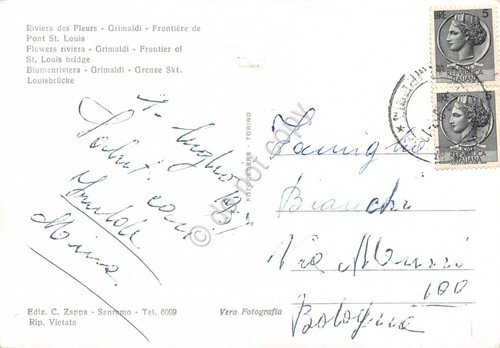 Riviera des Fleurs - Grimaldi - Frontière de
Pont St. Louis
Flowers riviera - Grimaldi - Frontier of
St. Louis bridge
Blumenriviera - Grimaldi - Grenze Skt.
Louisbrücke
luglio
Saluti cari
Ediz. C. Zappa - Sanremo - Tel. 6009
Rip. Vietata
FOTOCELERE - TORINO
Vera Fotografia
do not copy
LIRE 5
ITALIANA
LIRE 5
ITALIANA
Famiglia
Bianchi
Via
100
Bologna